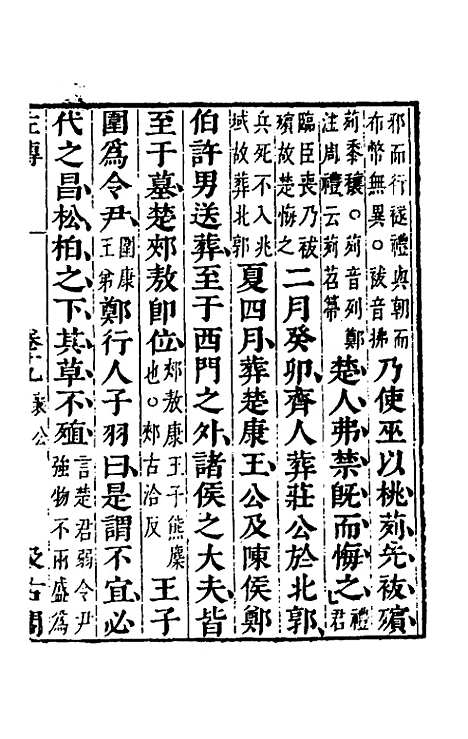 邪而行襚禮與朝而
布幣無異○祓音拂
乃使巫以桃茢先祓殯
茢黍穰○茢音列鄭
注周禮云茢苕帚
楚人弗禁旣而悔之
禮
君
臨臣喪乃祓
殯故楚悔之
二月癸卯齊人葬莊公於北郭
兵死不入兆
域故葬北郭
夏四月葬楚康王公及陳侯鄭
伯許男送葬至于西門之外諸侯之大夫皆
至于墓楚郟敖卽位
郟敖康王子熊麇
也○郟古洽反
王子
圍爲令尹
圍康
王弟
鄭行人子羽曰是謂不宜必
代之昌松柏之下其草不殖
言楚君弱令尹
強物不兩盛爲
左傳 卷十九 襄公 汲古閣